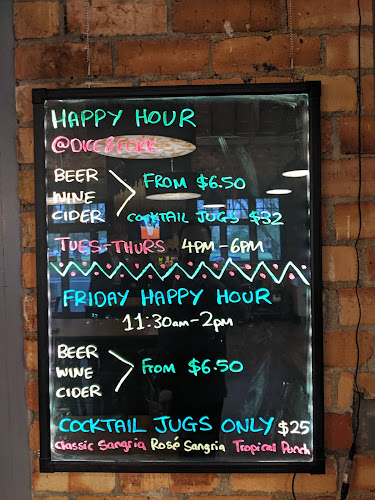 HAPPY HOUR
@DICE&FORK
BEER
WINE
CIDER
FROM $6.50
COCKTAIL JUGS $32
TUES-THURS 4PM-6PM
FRIDAY HAPPY HOUR
11:30am-2pm
BEER
WINE
CIDER
From $6.50
COCKTAIL JUGS ONLY $25
Classic Sangria Rosé Sangria Tropical Punch